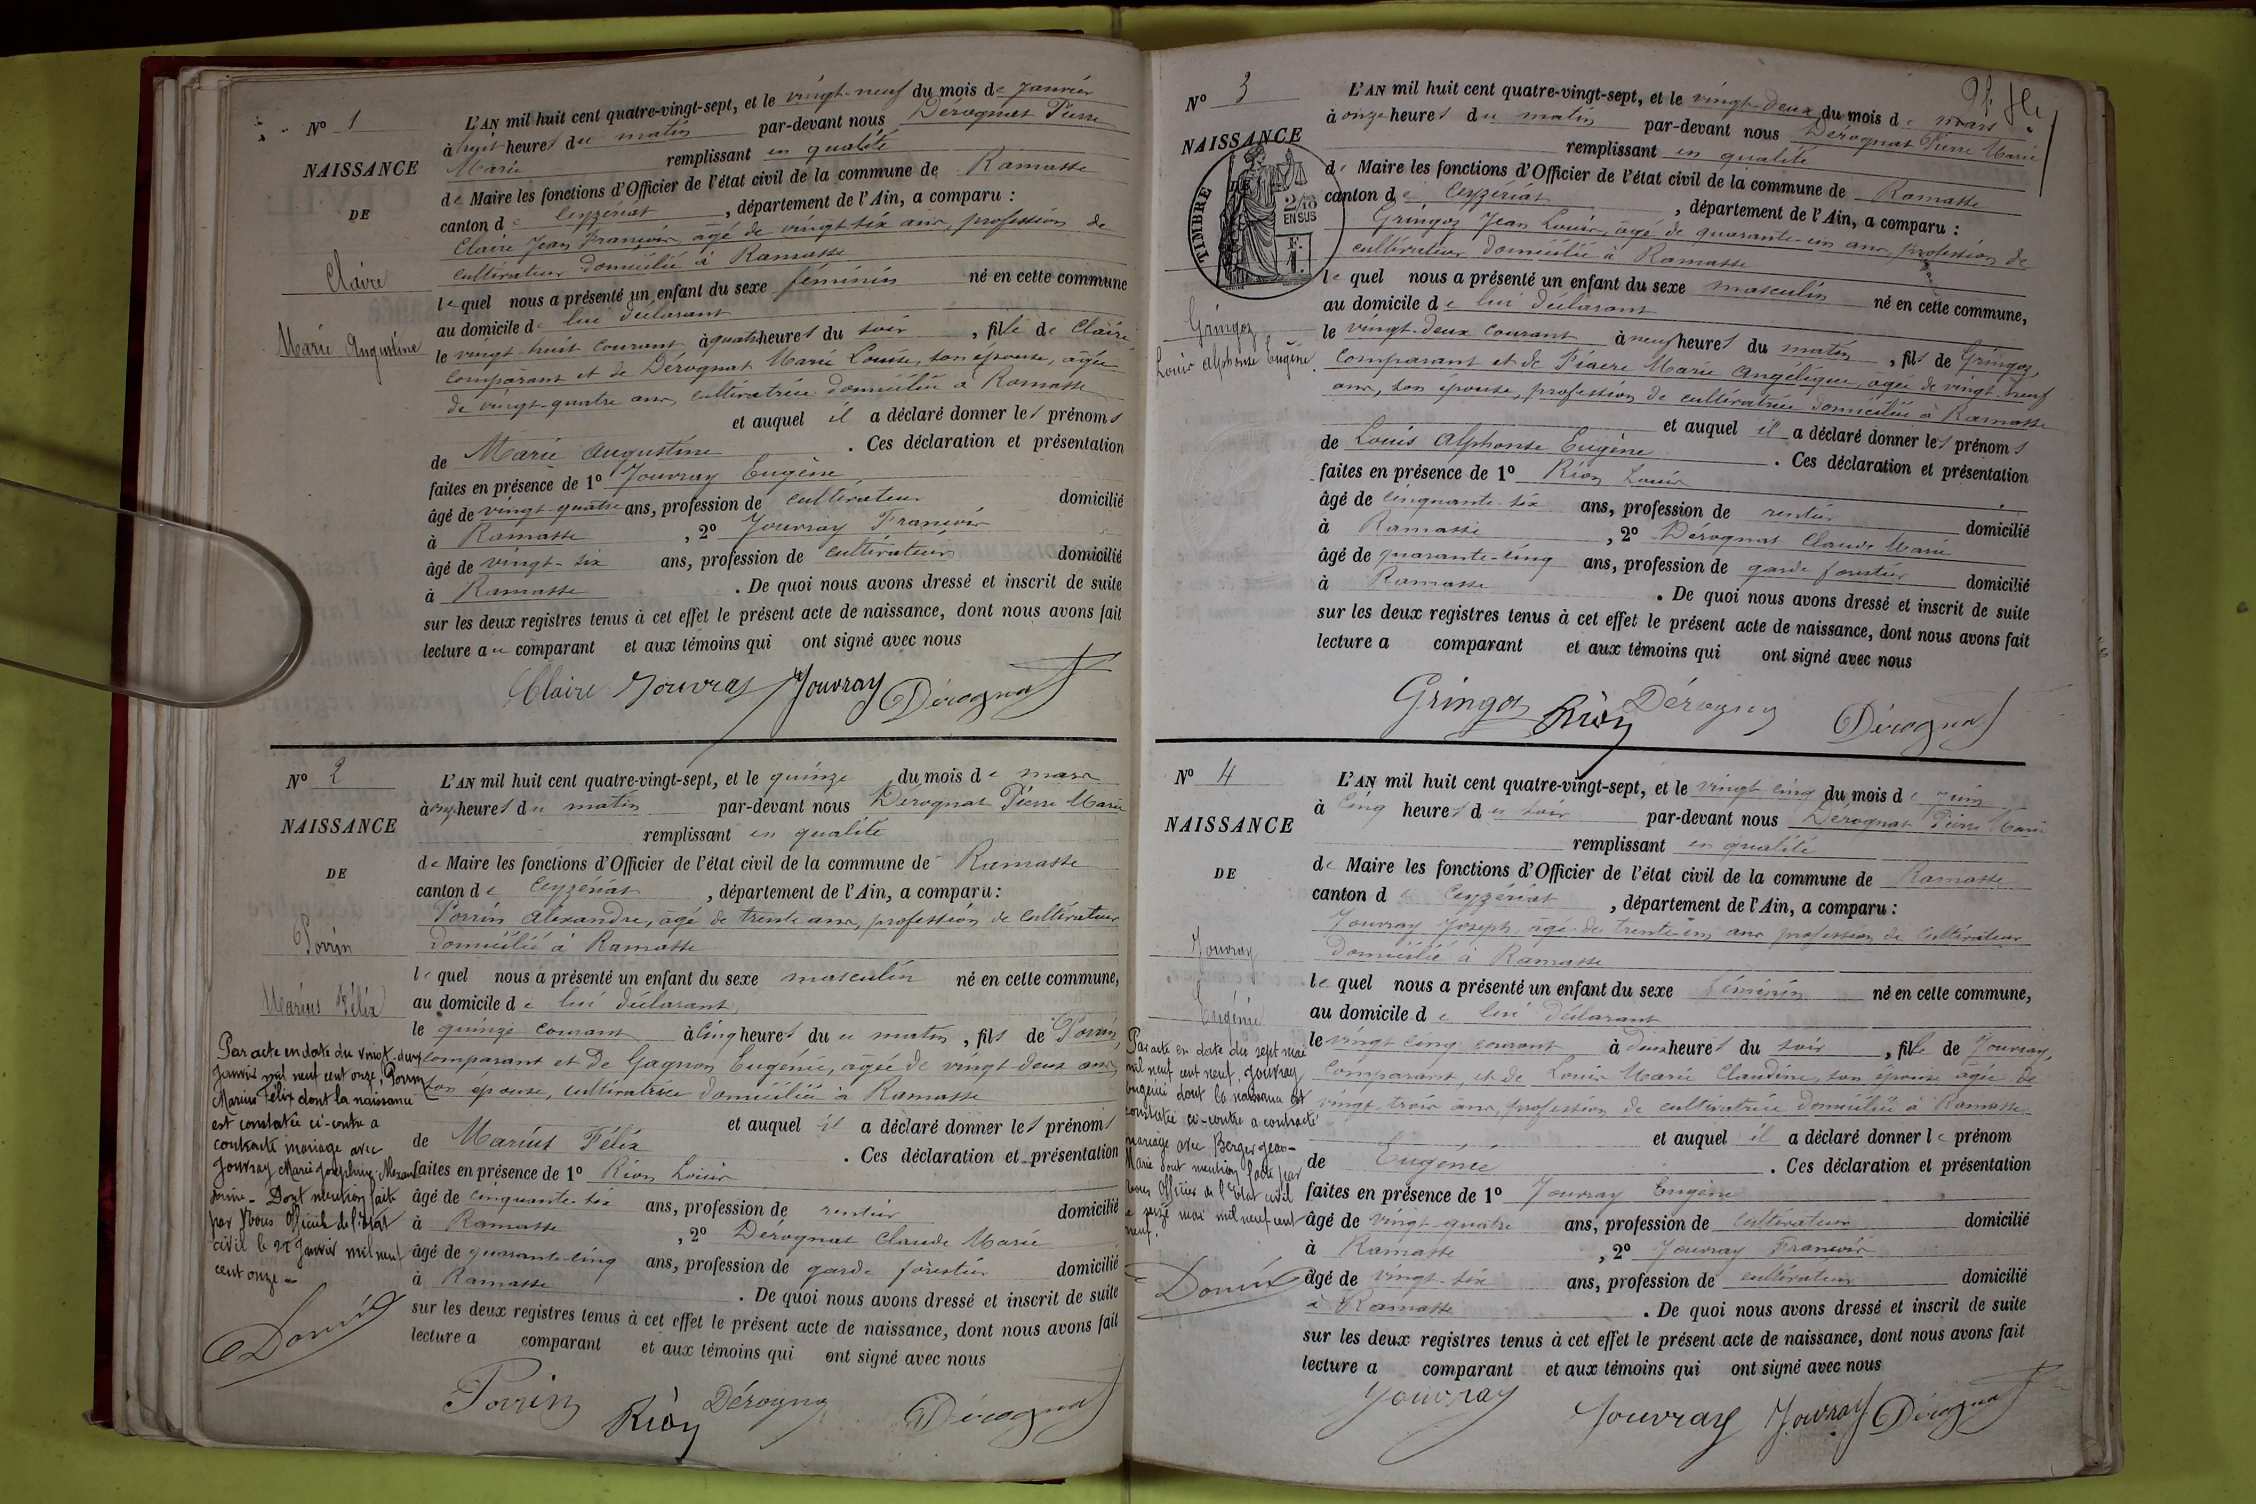 N° 1
NAISSANCE
DE
Claire
Marie Augustine
L'AN mil huit cent quatre-vingt-sept, et le vingt-neuf du mois de janvier
à heures du matin par-devant nous Dérognat Pierre
Marie remplissant en qualité
de Maire les fonctions d'Officier de l'état civil de la commune de Ramasse
canton de Ceyzériat, département de l'Ain, a comparu :
Claire Jean François, âgé de vingt-six ans, profession de
cultivateur domicilié à Ramasse
lequel nous a présenté un enfant du sexe féminin né en cette commune
au domicile de lui déclarant
le vingt-huit courant à quatre heures du soir, fille de Claire,
comparant et de Dérognat Marie Louise, son épouse, âgée
de vingt-quatre ans, cultivatrice domiciliée à Ramasse
et auquel il a déclaré donner les prénoms
de Marie Augustine. Ces déclaration et présentation
faites en présence de 1° Jouvray Eugène
âgé de vingt-quatre ans, profession de cultivateur domicilié
à Ramasse, 2° Jouvray François
âgé de vingt-six ans, profession de cultivateur domicilié
à Ramasse. De quoi nous avons dressé et inscrit de suite
sur les deux registres tenus à cet effet le présent acte de naissance, dont nous avons fait
lecture au comparant et aux témoins qui ont signé avec nous
Claire Jouvray Jouvray Dérognat
N° 2
NAISSANCE
DE
Porrin
Marius Félix
L'AN mil huit cent quatre-vingt-sept, et le quinze du mois de mars
à onze heures du matin par-devant nous Dérognat Pierre Marie
remplissant en qualité
de Maire les fonctions d'Officier de l'état civil de la commune de Ramasse
canton de Ceyzériat, département de l'Ain, a comparu :
Porrin Alexandre, âgé de trente ans, profession de cultivateur
domicilié à Ramasse
lequel nous a présenté un enfant du sexe masculin né en cette commune,
au domicile de lui déclarant
le quinze courant à cinq heures du matin, fils de Porrin,
comparant et de Gagnon Eugénie, âgée de vingt-deux ans,
son épouse, cultivatrice domiciliée à Ramasse
et auquel il a déclaré donner les prénoms
de Marius Félix. Ces déclaration et présentation
faites en présence de 1° Rion Louis
âgé de cinquante-six ans, profession de rentier domicilié
à Ramasse, 2° Dérognat Claude Marie
âgé de quarante-cinq ans, profession de garde forestier domicilié
à Ramasse. De quoi nous avons dressé et inscrit de suite
sur les deux registres tenus à cet effet le présent acte de naissance, dont nous avons fait
lecture a comparant et aux témoins qui ont signé avec nous
Porrin Rion Dérognat Dérognat
Par acte en date du vingt-deux
Janvier mil neuf cent onze, Porrin
Marius Félix dont la naissance
est constatée ci-contre a
contracté mariage avec
Jouvray Marie Joséphine
Dont mention faite
par Nous Officier de l'état
civil le Janvier mil neuf
cent onze
N° 3
NAISSANCE
TIMBRE
2/10
EN SUS
F.
Gringoz
Louis Alphonse Eugène
L'AN mil huit cent quatre-vingt-sept, et le vingt-deux du mois de mars
à onze heures du matin par-devant nous Dérognat Pierre Marie
remplissant en qualité
de Maire les fonctions d'Officier de l'état civil de la commune de Ramasse
canton de Ceyzériat, département de l'Ain, a comparu :
Gringoz Jean Louis, âgé de quarante-un ans, profession de
cultivateur domicilié à Ramasse
lequel nous a présenté un enfant du sexe masculin né en cette commune,
au domicile de lui déclarant
le vingt-deux courant à neuf heures du matin, fils de Gringoz,
comparant et de Fiacre Marie Angélique, âgée de vingt-neuf
ans, son épouse, profession de cultivatrice domiciliée à Ramasse
et auquel il a déclaré donner les prénoms
de Louis Alphonse Eugène. Ces déclaration et présentation
faites en présence de 1° Rion Louis
âgé de cinquante-six ans, profession de rentier domicilié
à Ramasse, 2° Dérognat Claude Marie
âgé de quarante-cinq ans, profession de garde forestier domicilié
à Ramasse. De quoi nous avons dressé et inscrit de suite
sur les deux registres tenus à cet effet le présent acte de naissance, dont nous avons fait
lecture a comparant et aux témoins qui ont signé avec nous
Gringoz Rion Dérognat Dérognat
N° 4
NAISSANCE
DE
Jouvray
Eugénie
L'AN mil huit cent quatre-vingt-sept, et le vingt cinq du mois de juin
à cinq heures du soir par-devant nous Dérognat Pierre Marie
remplissant en qualité
de Maire les fonctions d'Officier de l'état civil de la commune de Ramasse
canton de Ceyzériat, département de l'Ain, a comparu :
Jouvray Joseph, âgé de trente-un ans profession de cultivateur
domicilié à Ramasse
lequel nous a présenté un enfant du sexe féminin né en cette commune,
au domicile de lui déclarant
le vingt cinq courant à deux heures du soir, fille de Jouvray,
comparant, et de Louis Marie Claudine, son épouse âgée de
vingt-trois ans, profession de cultivatrice domiciliée à Ramasse
et auquel il a déclaré donner le prénom
de Eugénie. Ces déclaration et présentation
faites en présence de 1° Jouvray Eugène
âgé de vingt-quatre ans, profession de cultivateur domicilié
à Ramasse, 2° Jouvray François
âgé de vingt-six ans, profession de cultivateur domicilié
à Ramasse. De quoi nous avons dressé et inscrit de suite
sur les deux registres tenus à cet effet le présent acte de naissance, dont nous avons fait
lecture a comparant et aux témoins qui ont signé avec nous
Jouvray Jouvray Jouvray Dérognat
Par acte en date du sept mai
mil neuf cent neuf, Jouvray
Eugénie dont la naissance est
constatée ci-contre a contracté
mariage avec Berger Jean-
Marie dont mention faite par
Nous Officier de l'Etat civil
le seize mai mil neuf cent
neuf.